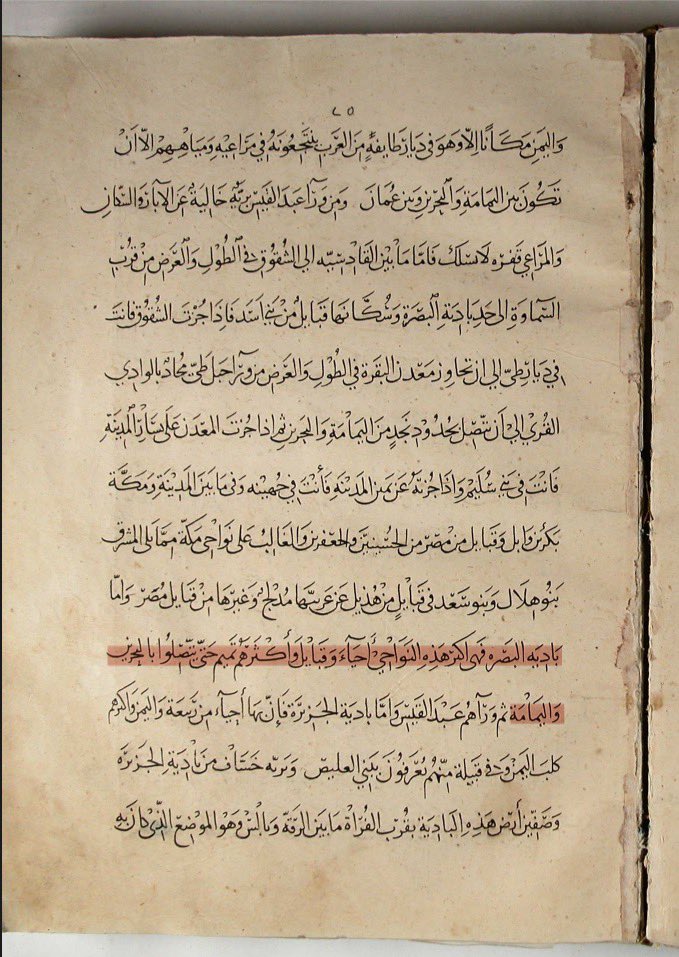 ٢٥
واليَمن مكَانًا الّا وهو فى ديار طايفَةٍ من العَرَب ينتجعُونهُ في مَرَاعيهِ وَميَاهِهِم الّا أنْ
تكُونَ بَين اليمَامة وَالبحَرين وبَين عُمانَ ومن وَرَآء عبدَ القَيس بريّه خَالية عَن الآبار وَالسّكان
والمَراعي قفره لا تسلك فامّا ما بَين القادسيّه الى الشقُوق فى الطول والعَرض من قرب
السّماوَةِ الى حد باديَة البصرَة وَسُكَّانهَا قبايلُ من بَني أسَد فاذا جُزتَ الشقُوق فانت
في ديار طيّ الى ان تجاوز معدن النقرة في الطُول وَالعَرض من ورَآء جبل طيّ محاذ بالوادي
القُري الى أن يتّصل بحدُود نجدٍ منَ اليمَامَة وَالبحرين ثم اذا جُزتَ المعدَن عَلى يسَار المدينَة
فَانتَ في بَني سُلَيم وَاذَا جُزتَهُ عَن يَمين المَدينَه فَأنتَ في جُهينه وَفى مَا بَين المَدينَة وَمَكَّة
بكر بن وايل وقبايل من مُضر من الحُسَينيين والجعفرين والغَالبُ على نواحى مكة ممّا يلى المشرق
بنُو هلَال وَبنو سَعْد فى قبَايلٍ من هُذيل عَن غربيّها مُدلج وغيرهَا من قبايل مُضَر وَامّا
باديه البَصره فهى اكثر هَذِهِ النوَاحيْ أحيَآءً وَقبَايل وَأكثرهُم تميم حَتّى يتّصلوُا بالبحرين
وَاليمَامَة ثم وَرَآهم عَبد القَيس وَامّا باديَة الجَزيرَة فَانّ بهَا أحيآء من ربيعَة واليَمن واكثرهم
كلب اليَمن وَفى قبيلة منهُم يُعرفُونَ ببَني العليص وَبريّه خسَاف من بَاديَة الجَزيرَه
وَصفّين أرض هَذهِ البَاديَة بقُرب الفُرَاة مَا بَين الرقّة وبالس وَهو الموضع الذّى كانَ بهِ